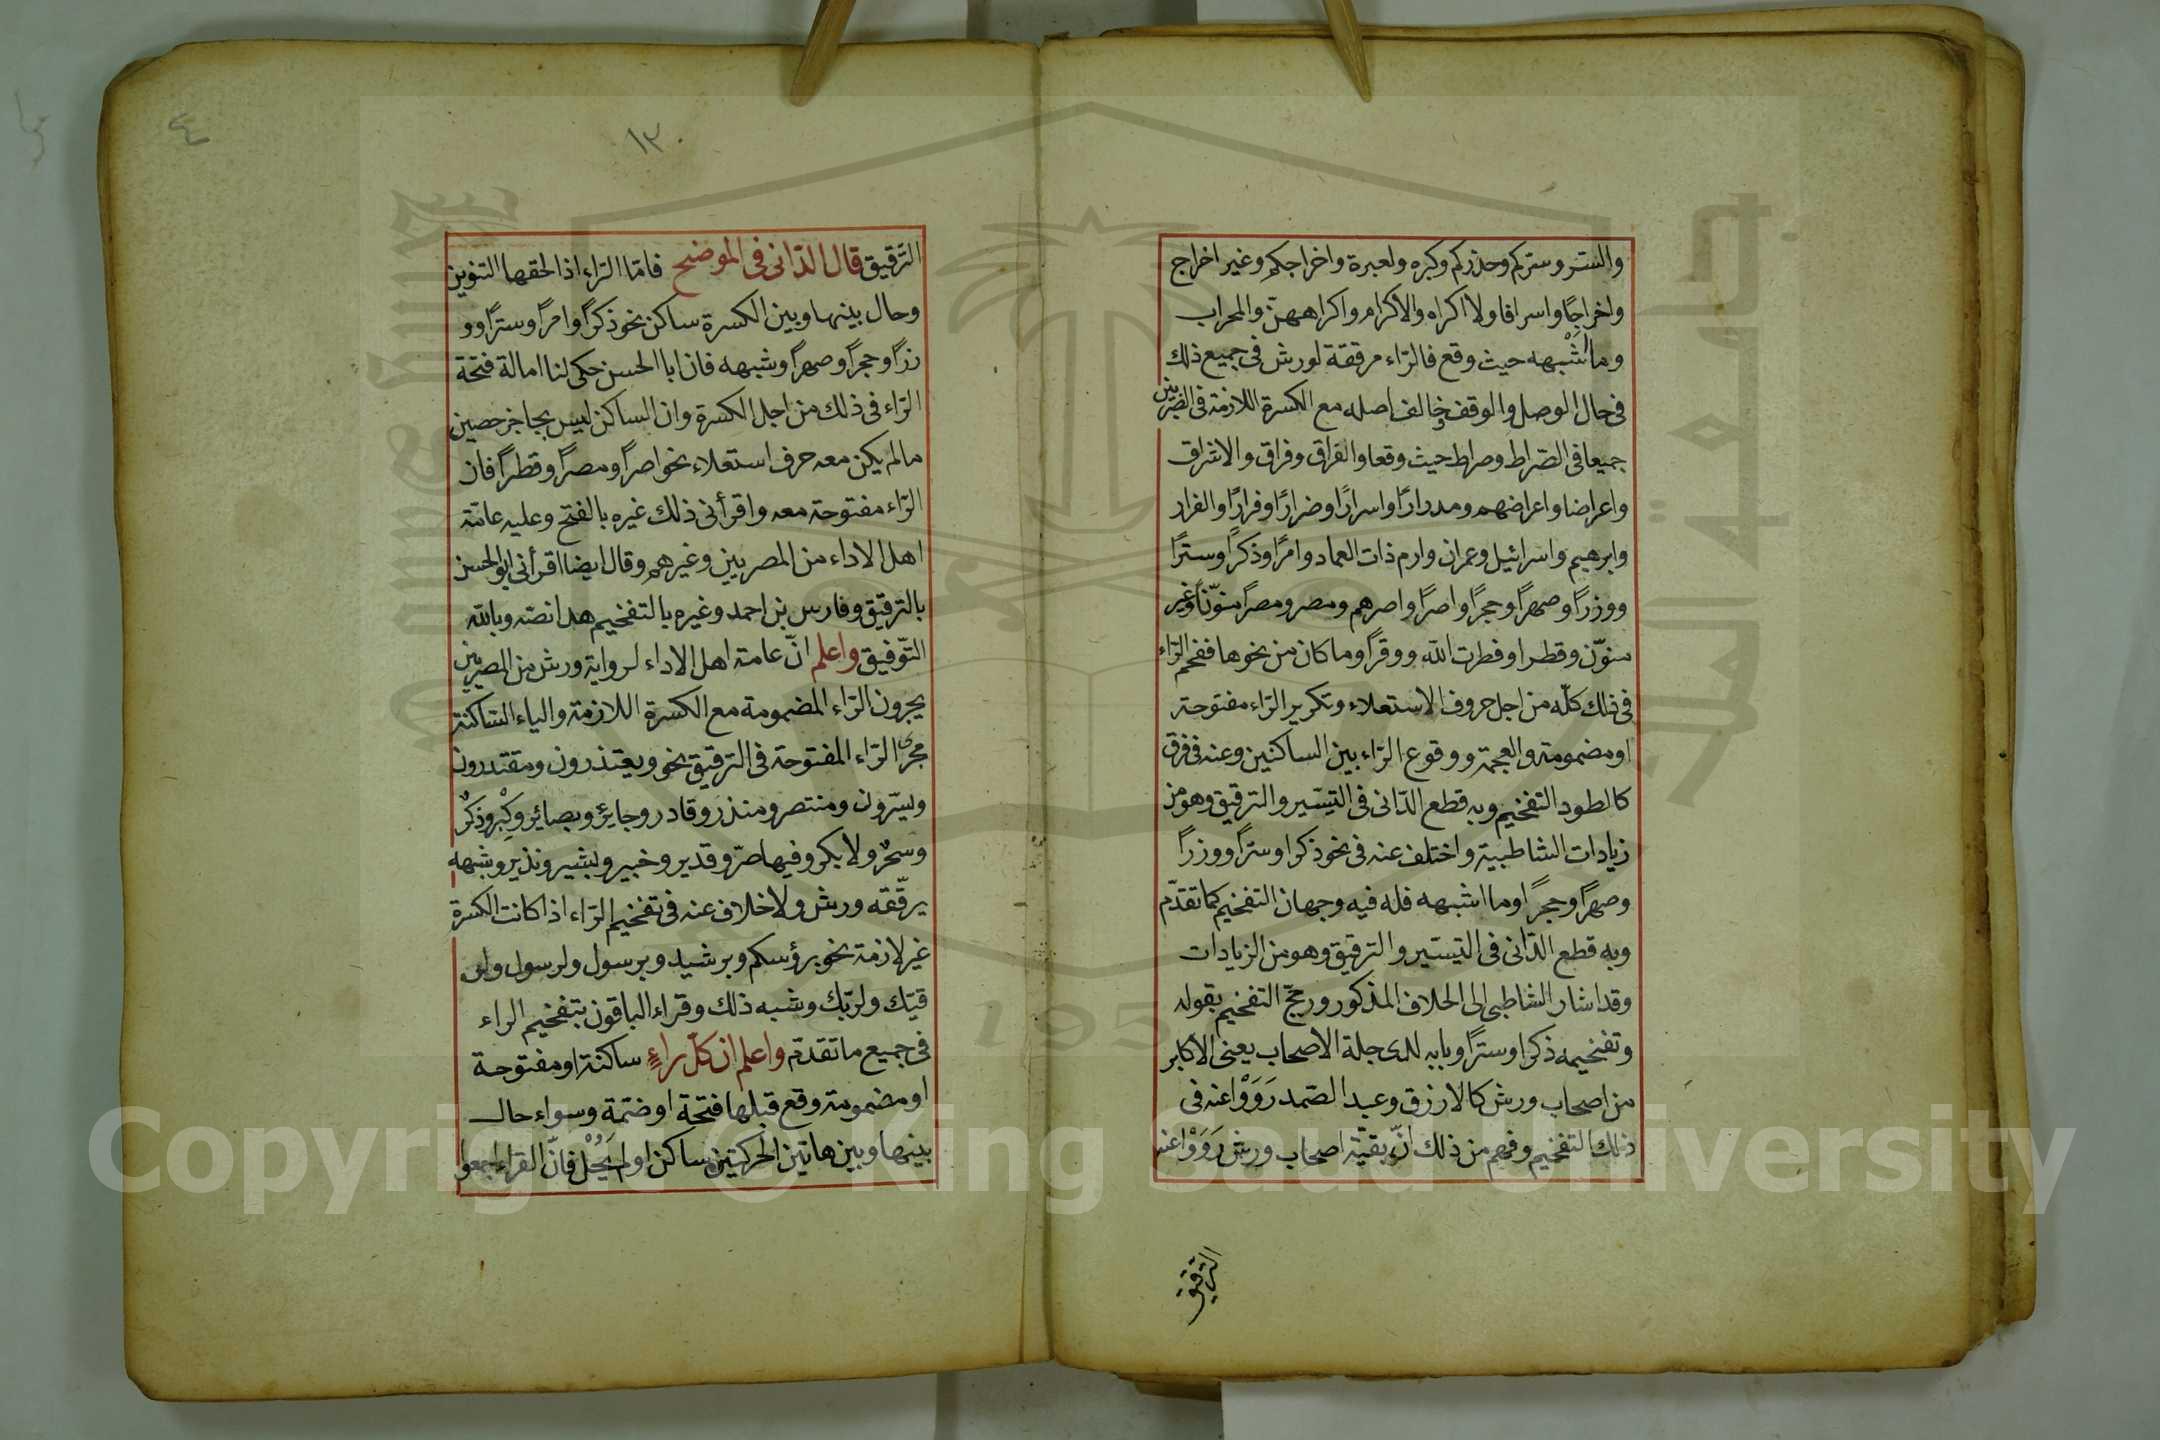 والستر وستركم وحذركم وكبره ولعبرة واخراجكم وغير اخراج
واخراجًا واسرافا ولا اكراه والاكرام واكراههن والمحراب
وما اشْبهه حيث وقع فالرّاء مرققة لورش فى جميع ذلك
فى حال الوصل والوقف وخالف اصله مع الكسرة اللازمة فى الضربين
جميعا فى الصّراط وصراط حيث وقعا والفراق وفراق والاشراق
واعراضا واعراضهم ومدرارًا واسرارًا وضرارًا وفرارًا والفرار
وابرهيم واسرائيل وعمران وارم ذات العماد وامرًا وذكرًا وسترًا
ووزرًا وصهرًا وحجرًا واصرًا واصرهم ومصر ومصرًا منوّنًا وغير
منوّن وقطرا وفطرت الله ووقرًا وما كان من نحوها ففخم الرّاء
فى ذلك كلّه من اجل حروف الاستعلاء وتكرير الرّاء مفتوحة
او مضمومة والعجمة ووقوع الرّاء بين الساكنين وعنه فى فرق
كالطود التفخيم وبه قطع الدّانى فى التيسّير والترقيق وهو من
زيادات الشاطبية واختلف عنه فى نحو ذكرا وسترًا ووزرًا
وصهرًا وحجرًا وما اشبهه فله فيه وجهان التفخيم كما تقدّم
وبه قطع الدّانى فى التيسّير والترقيق وهو من الزيادات
وقد اشار الشاطبى الى الخلاف المذكور ورجّح التفخيم بقوله
وتفخيمه ذكرا وسترًا وبابه لدى جلة الاصحاب يعنى الاكابر
من اصحاب ورش كالازرق وعبد الصّمد رَوَوْا عنه فى
ذلك التفخيم وفهم من ذلك انّ بقيّة اصحاب ورش رَوَوْا عنه
الترقيق
١٣
الترّقيق قال الدّانى فى الموضح فامّا الرّاء اذا لحقها التنوين
وحال بينها وبين الكسرة ساكن نحو ذكرًا وامرًا وسترًا وو
زرًا وحجرًا وصهرًا وشبهه فان ابا الحسن حكى لنا امالة فتحة
الرّاء فى ذلك من اجل الكسرة وان الساكن ليس بحاجز حصين
ما لم يكن معه حرف استعلاء نحو اصرًا ومصرًا وقطرًا فان
الرّاء مفتوحة معه واقرأنى ذلك غيره بالفتح وعليه عامّة
اهل الاداء من المصريين وغيرهم وقال ايضا اقرأنى ابو الحسن
بالترقيق وفارس بن احمد وغيره بالتفخيم هذا نصّه وبالله
التّوفيق واعلم انّ عامة اهل الاداء لرواية ورش من المصريين
يجرون الرّاء المضمومة مع الكسرة اللازمة والياء السّاكنة
مجرى الرّاء المفتوحة فى الترقيق نحو ويعتذرون ومقتدرون
ويسّرون ومنتصر ومنذر وقادر وجايرٌ وبصائر وكِبْر وذكرٌ
وسحرٌ ولا بكر وفيها صرّ وقدير وخبير وبشير ونذير وشبهه
يرقّقه ورش ولا خلاف عنه فى تفخيم الرّاء اذا كانت الكسرة
غير لازمة نحو برؤسكم وبرشيد وبرسول ولرسول ولر
قيّك ولربّك وشبه ذلك وقراء الباقون بتفخيم الراء
فى جميع ما تقدّم واعلم ان كلّ راءٍ ساكنة او مفتوحة
او مضمومة وقع قبلها فتحة او ضمّة وسواء حال
بينها وبين هاتين الحركتين ساكن او لم يَحُلْ فانّ القراء اجمعوا
Copyright © King Saud University